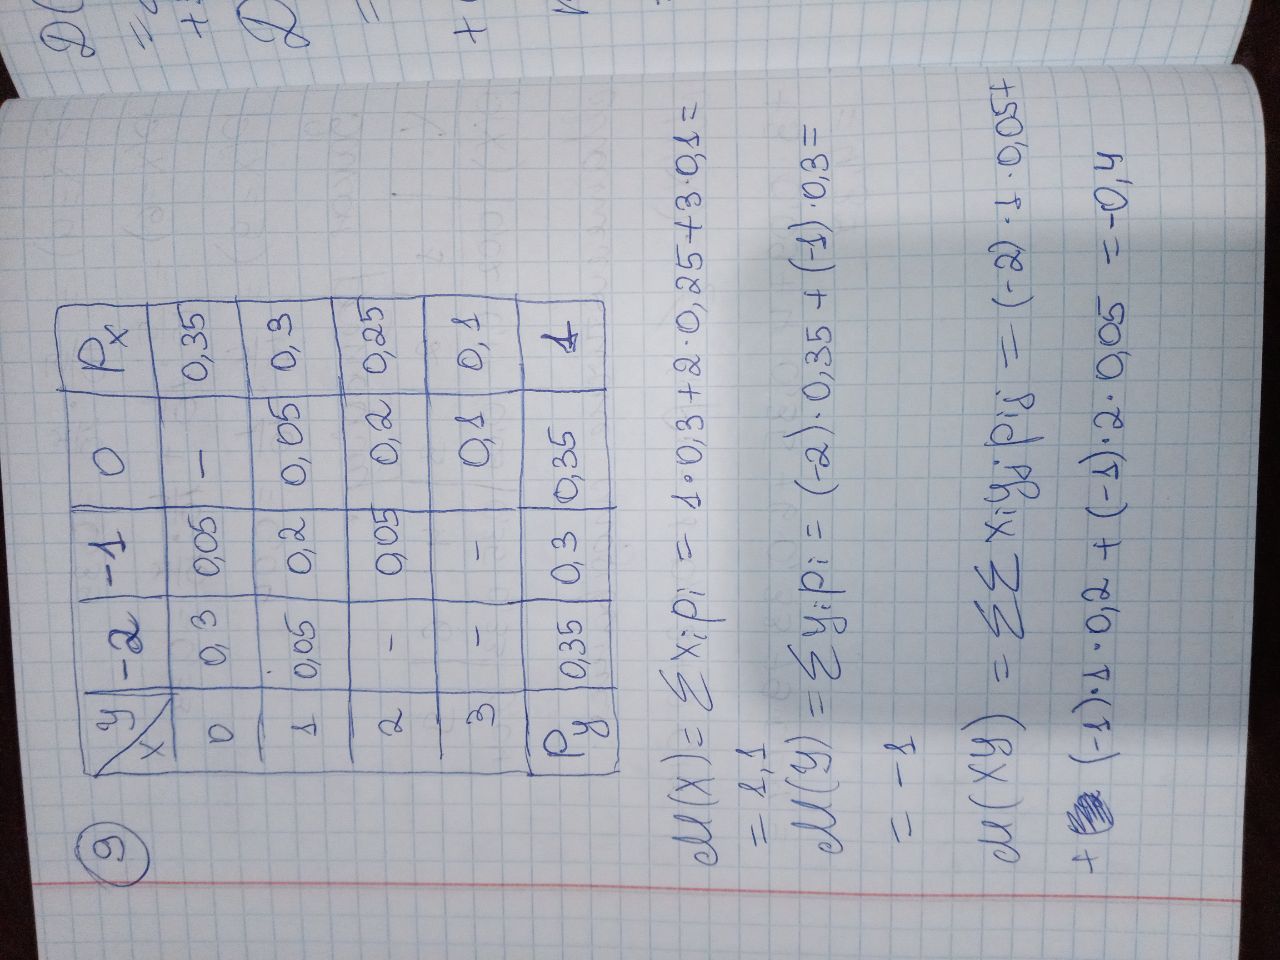 9
y -2 -1 0 Px
x
0 0,3 0,05 — 0,35
1 0,05 0,2 0,05 0,3
2 - 0,05 0,2 0,25
3 - - 0,1 0,1
Py 0,35 0,3 0,35 1
M(X) = ∑ xipi = 1·0,3+2·0,25+3·0,1=
= 1,1
M(y) = ∑ yipi = (-2)·0,35 + (-1)·0,3=
= -1
M(Xy) = ∑∑ xiyjpij = (-2)·1·0,05+
+ (-1)·1·0,2 + (-1)·2·0,05 = -0,4
D(
=
+
D
=
+